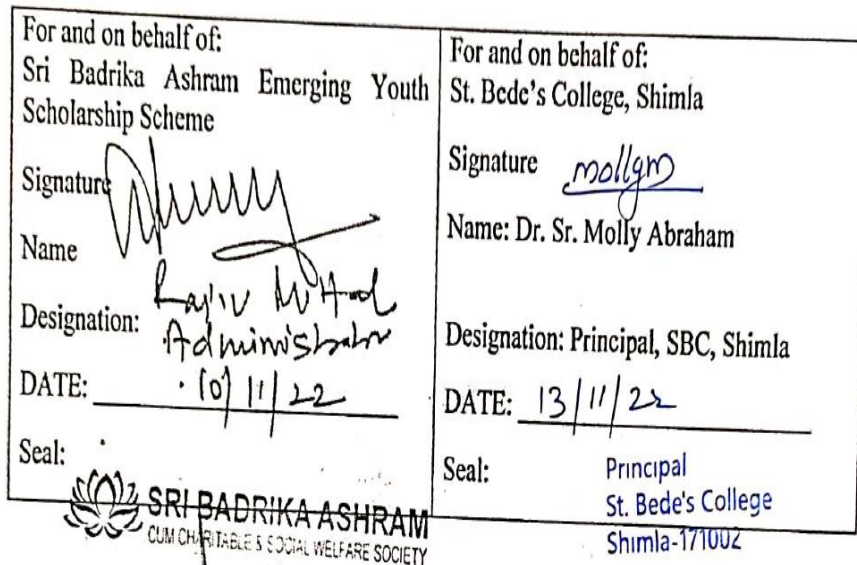 For and on behalf of:
Sri Badrika Ashram Emerging Youth
Scholarship Scheme
Signature
Name
Rajiv Mittal
Designation:
Administrator
DATE: 10/11/22
Seal:
SRI BADRIKA ASHRAM
CUM CHARITABLE & SOCIAL WELFARE SOCIETY
For and on behalf of:
St. Bede's College, Shimla
Signature mollym
Name: Dr. Sr. Molly Abraham
Designation: Principal, SBC, Shimla
DATE: 13/11/22
Seal:
Principal
St. Bede's College
Shimla-171002